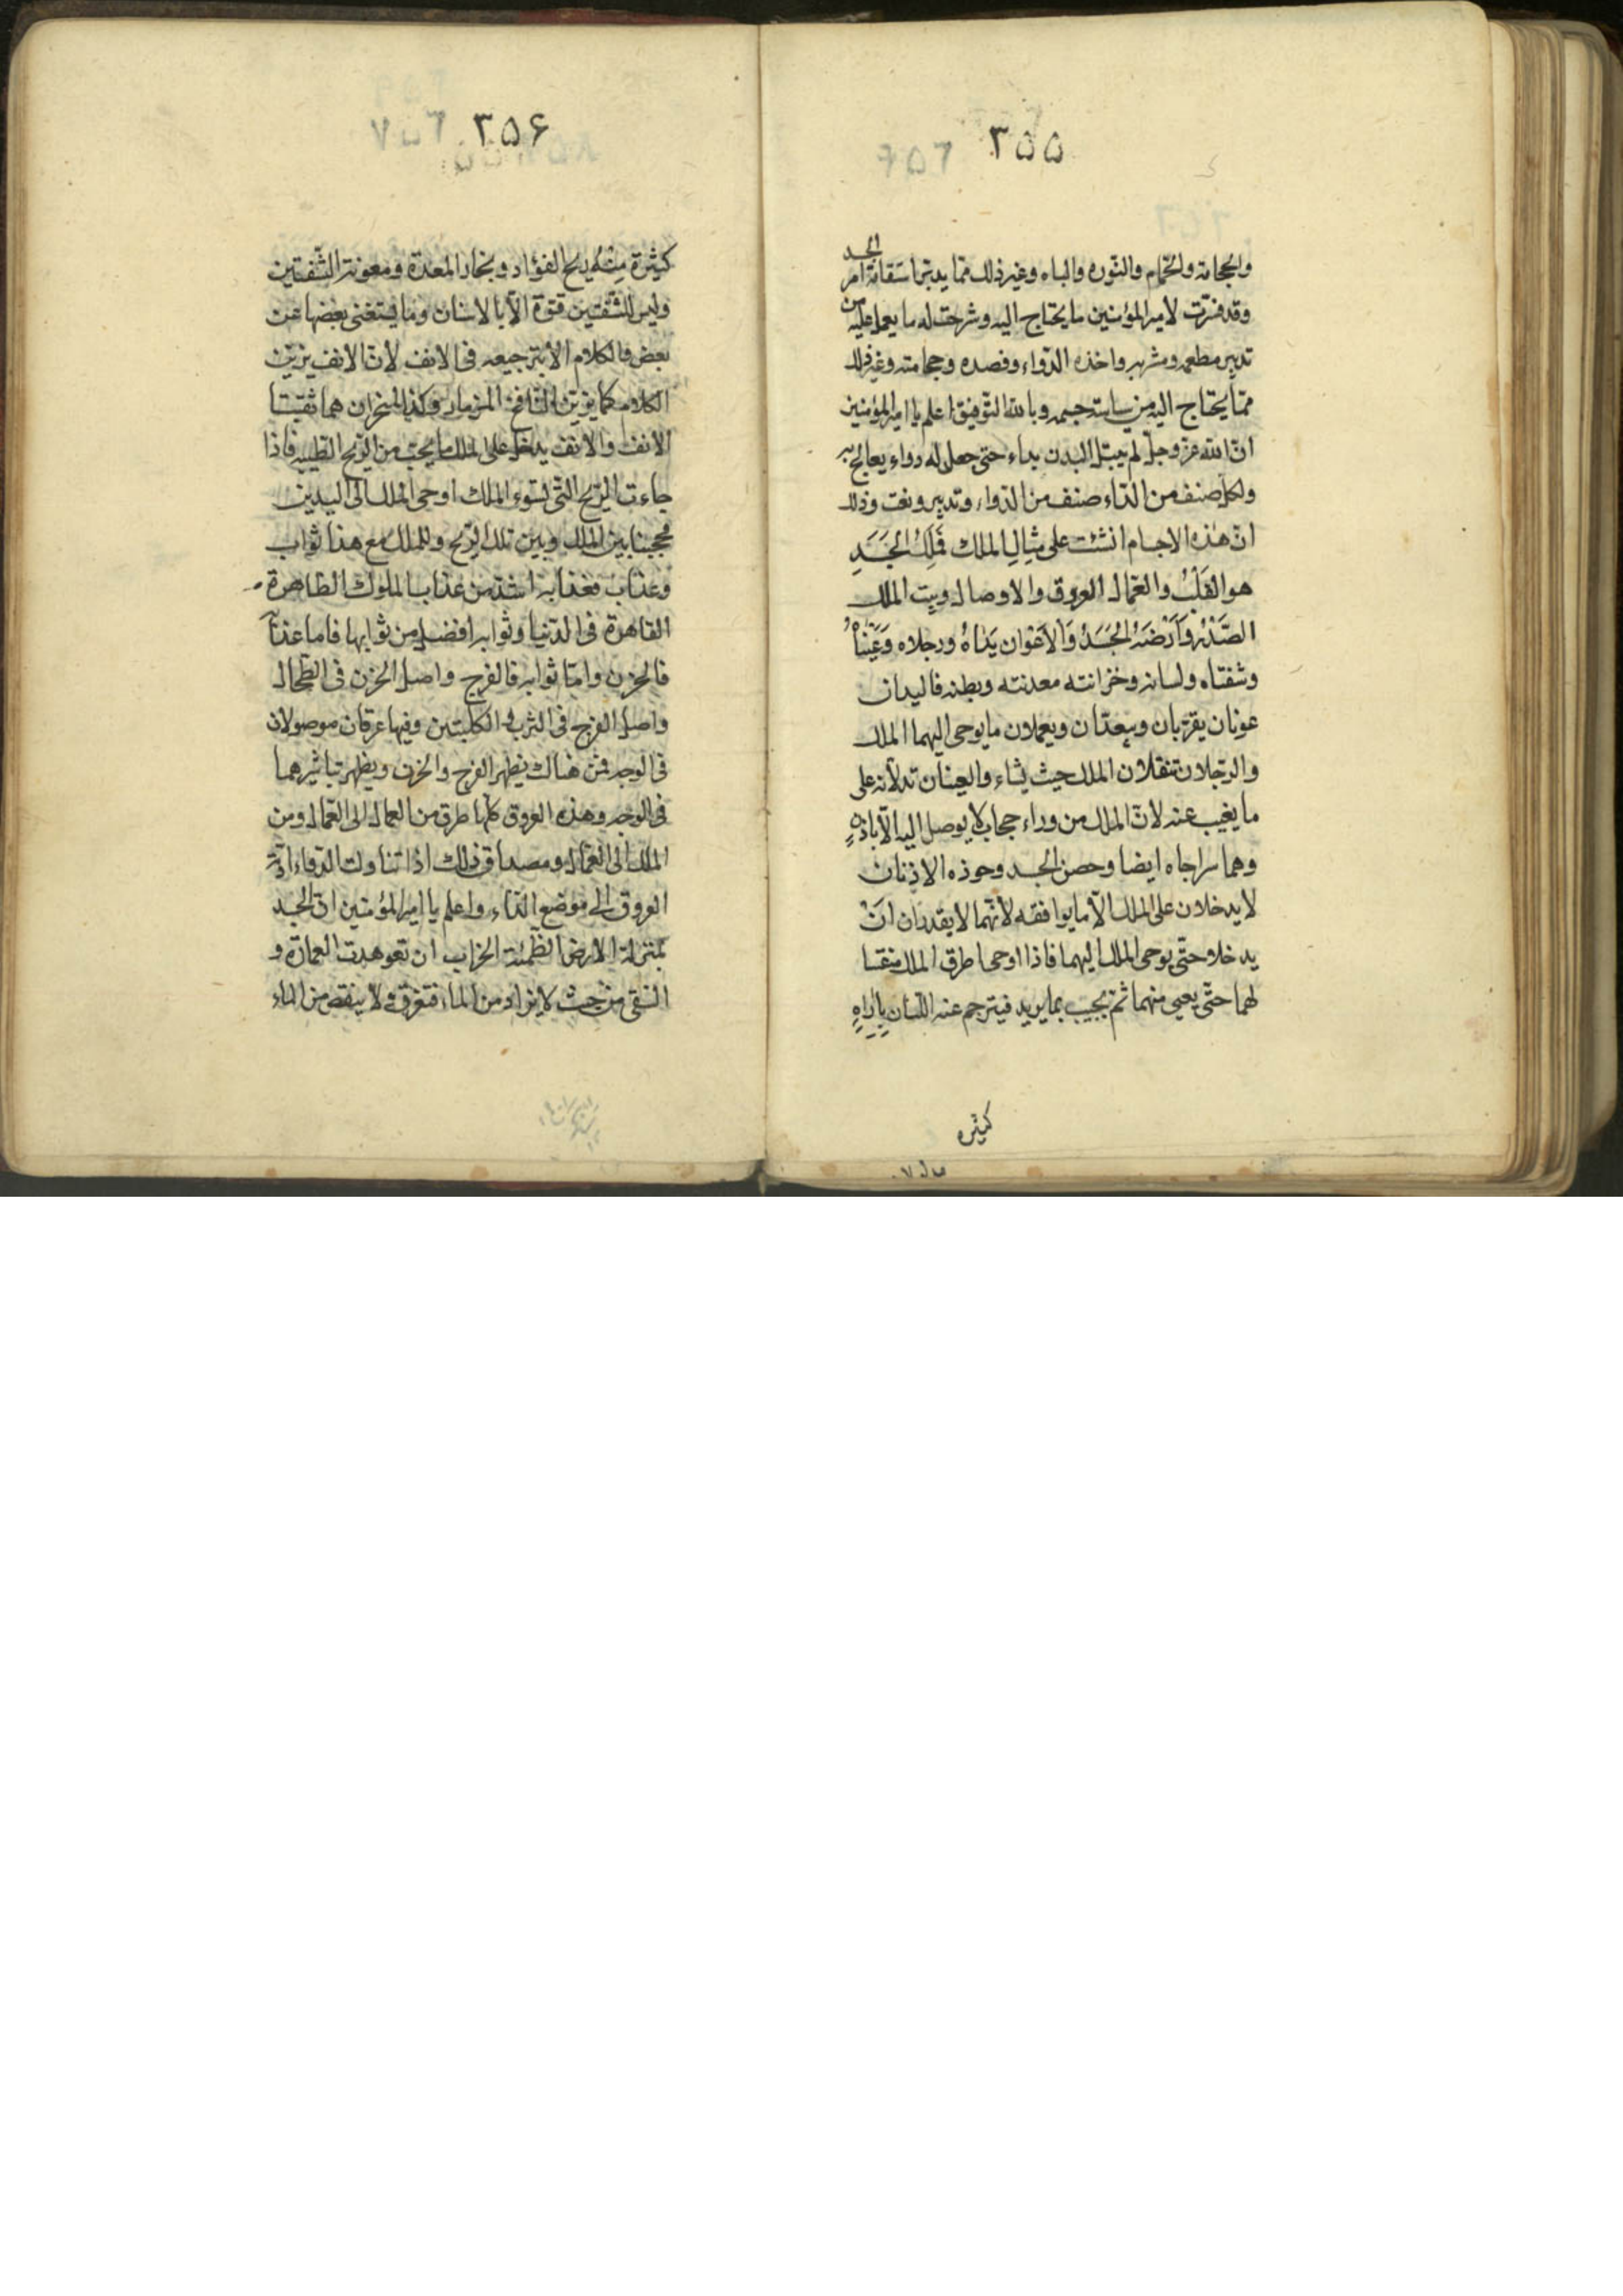 ٣٥٥
والحجامة والحمام والنوره والباه وغير ذلك مما يدبر استقامة امر الجسد
وقد فسرت لامير المؤمنين ما يحتاج اليه وشرحت له ما يعمل عليه من
تدبير مطعمه ومشربه واخذه الدواء وفصده وحجامته وغير ذلك
مما يحتاج اليه من سياسة جسمه وبالله التوفيق اعلم يا امير المؤمنين
ان الله عز وجل لم يبتل البدن بداء حتى جعل له دواء يعالج به
ولكل صنف من الداء صنف من الدواء وتدبير ونعت وذلك
ان هذه الاجسام انشئت على مثال الملك فَمَلِكُ الجَسَدِ
هو القَلْبُ والعمال العروق والاوصال وبيت الملك
الصَّدْرُ وَاَرْضُهُ الجَسَدُ وَالاَعْوان يَدَاهُ ورجلاه وَعَيْنَاهُ
وشفتاه ولسانه وخزانته معدته وبطنه فاليدان
عونان يقربان ويبعدان ويعملان ما يوحى اليهما الملك
والرجلان تنقلان الملك حيث يشاء والعينان تدلانه على
ما يغيب عنه لان الملك من وراء حجاب لا يوصل اليه الا باذنه
وهما سراجاه ايضا وحصن الجسد وحوذه الاذنان
لا يدخلان على الملك الا ما يوافقه لانهما لا يقدران ان
يدخلا حتى يوحى الملك اليهما فاذا اوحى اطرق الملك منتصتا
لهما حتى يعى منهما ثم يجيب بما يريد فيترجم عنه اللسان بادواة
كثيره
٣٥۶
كثيرة منه ريح الفؤاد وبخار المعدة ومعونة الشفتين
وليس للشفتين قوة الا بالاسنان وما يستغنى بعضها عن
بعض فالكلام الا بترجيعه فى الانف لان الانف يزين
الكلام كما يزين النافخ المزمار وكذا المنخران هما ثقبتا
الانف والانف يدخل على الملك ما يحب من الريح الطيبه فاذا
جاءت الريح التى تسوء الملك اوحى الملك الى اليدين
فحجبتا بين الملك وبين تلك الريح وللملك مع هذا ثواب
وعذاب فعذابه اشد من عذاب الملوك الظاهرة
القاهرة فى الدنيا وثوابه افضل من ثوابها فاما عذابه
فالحزن واما ثوابه فالفرح واصل الحزن فى الطحال
واصل الفرح فى الثرب و الكليتين وفيها عرقان موصولان
فى الوجه فمن هناك يظهر الفرح والحزن ويظهر تباشيرهما
فى الوجه وهذه العروق كلها طرق من العمال الى العمال ومن
الملك الى العمال ومصداق ذلك اذا تناولت الدواء ادته
العروق الى موضع الداء واعلم يا امير المؤمنين ان الجسد
بمنزلة الارض الطيبة الخراب ان تعوهدت العمارة و
السقى من حيث لا يزاد من الماء فتغرق و لا ينقص من الماء